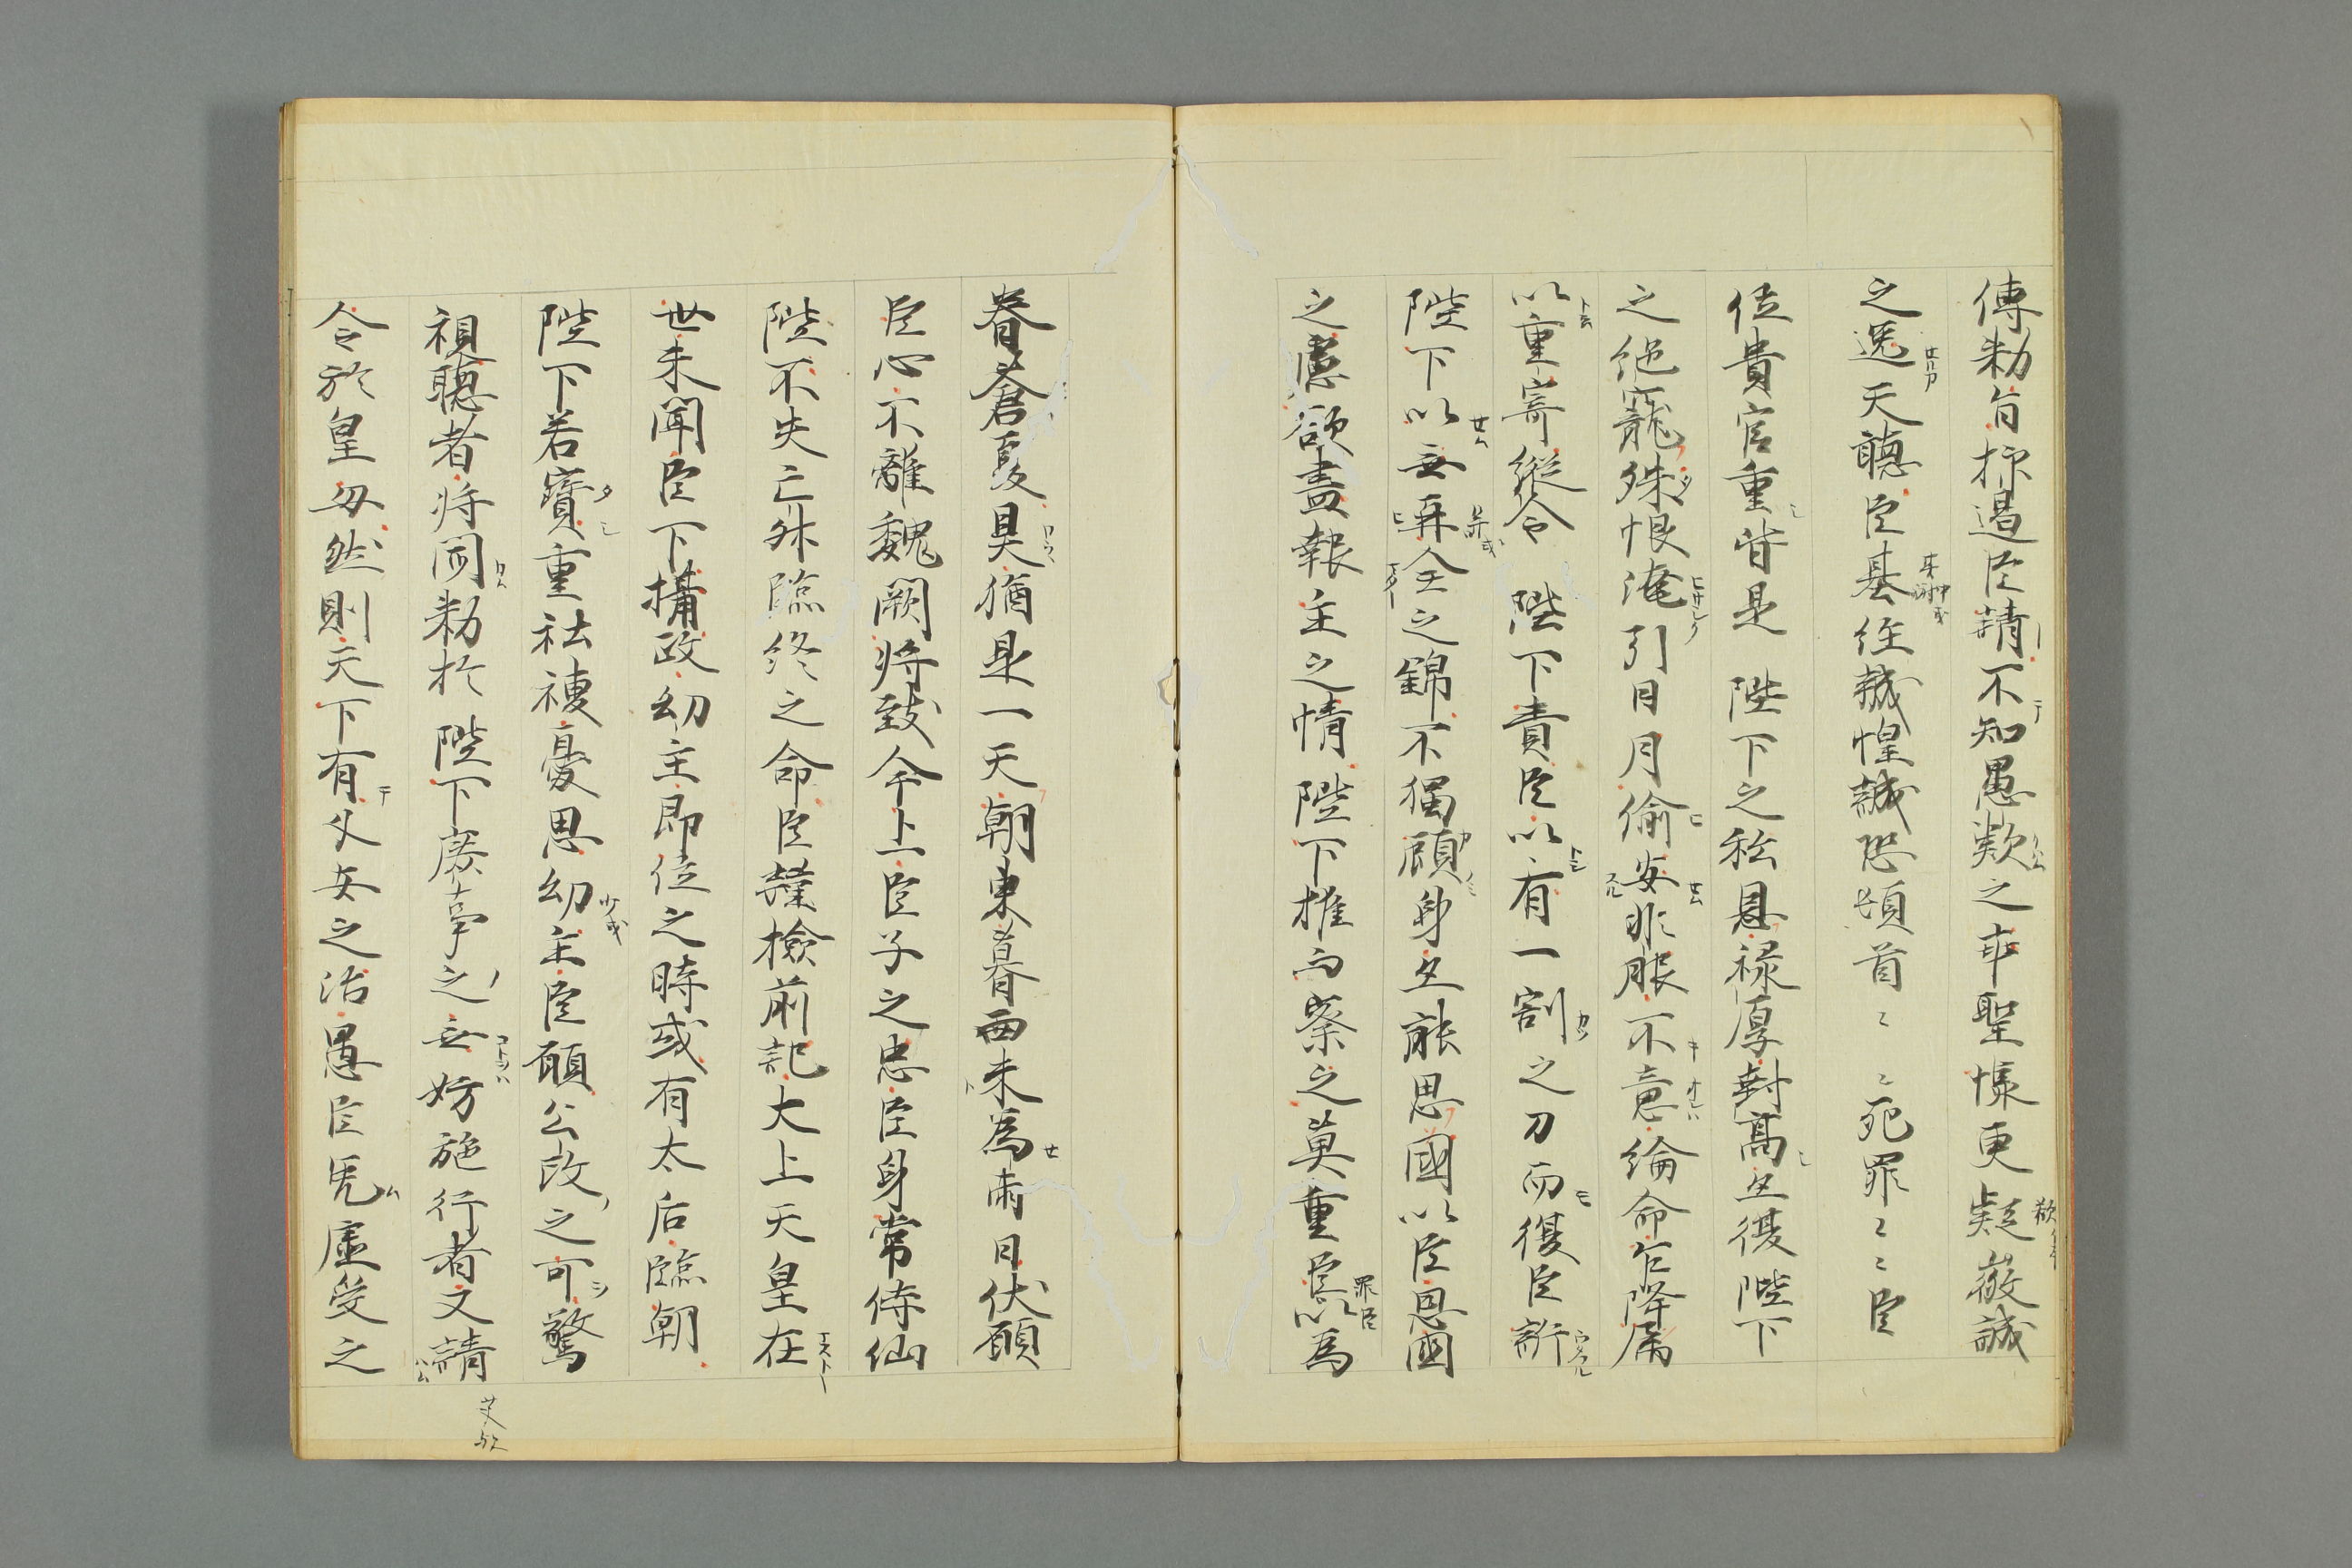 傳勅旨抑遏臣請不知愚欵之乖聖懷更疑嚴誠
之逆天聽臣基経誠惶誠恐頓首〻〻死罪〻〻臣
位貴官重皆是 陛下之私恩禄厚封髙亦復陛下
之絶寵殊恨淹引日月偷安非服不意綸命乍降属
以重寄縱令 陛下責臣以有一割之刀而復臣詐
陛下以無再全之錦不獨顧身亦能思國以臣恩國
之慮欲盡報主之情陛下推而察之莫重臣以為
眷蒼夏昊猶是一天朝東暮西未為兩日伏願
臣心不離魏闕將致今上臣子之忠臣身常侍仙
陛不失亡舛臨終之命臣謹檢前記大上天皇在
世未聞臣下攝政幼主即位之時或有太后臨朝
陛下若寶重社稷憂思幼主臣願公政之可驚
視聽者将同勅於 陛下庶事之無妨施行者文請
令於皇母然則天下有父母之治愚臣免虚受之